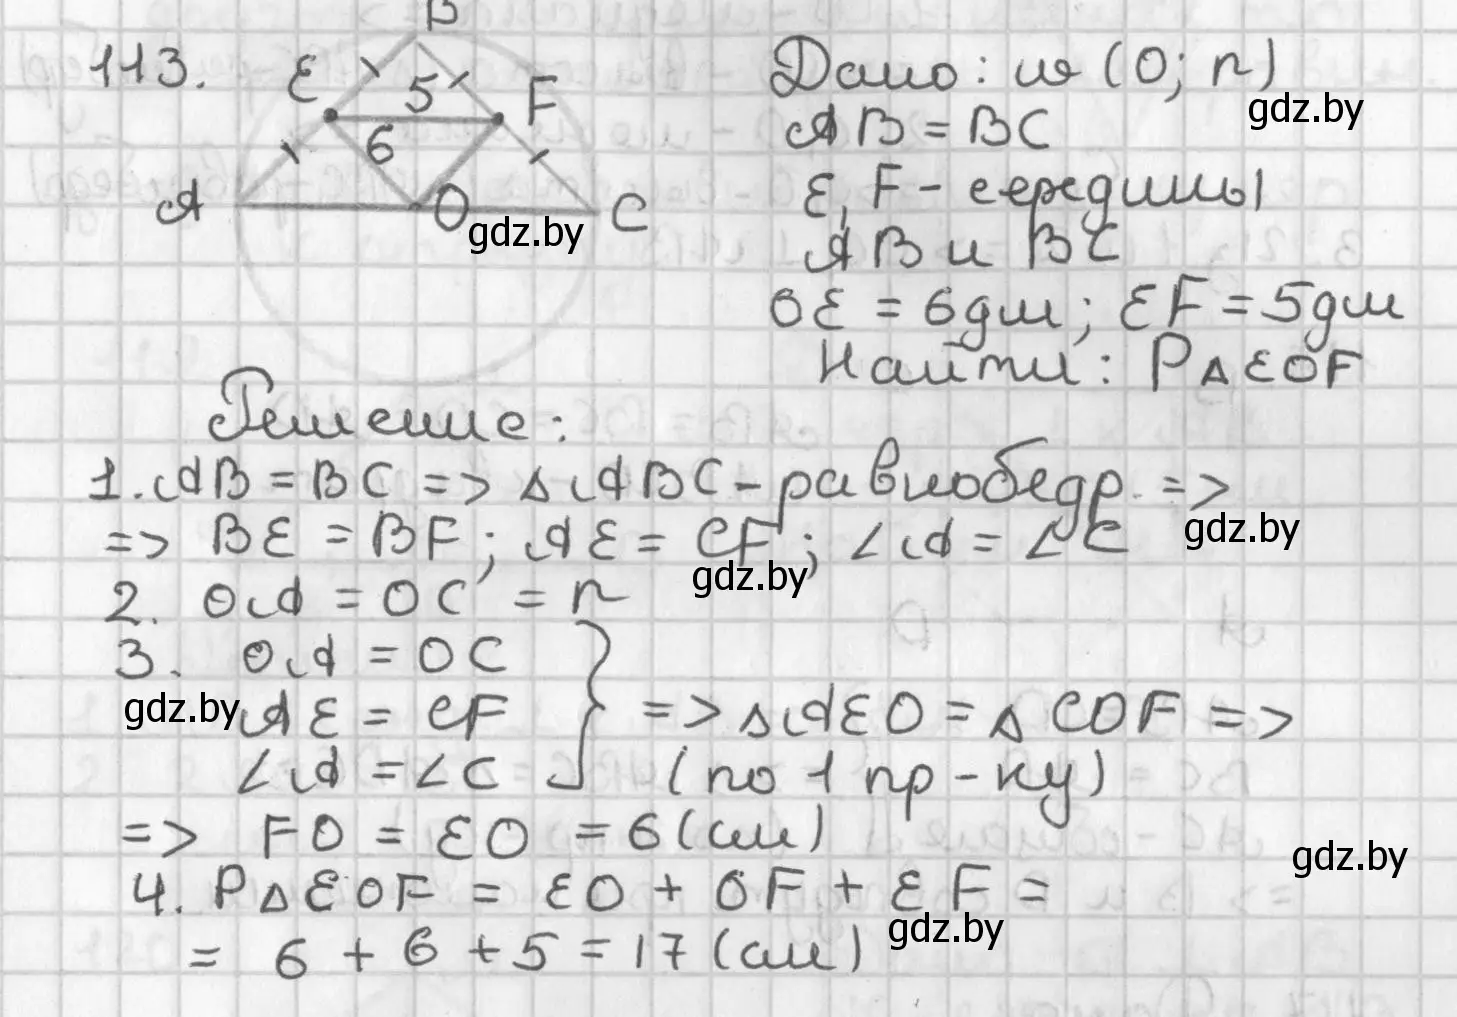 113.
B
E
5
F
6
A
O
C
gdz.by
Дано: w (O; r)
gdz.by
AB = BC
E, F - середины
AB и BC
OE = 6дм; EF = 5дм
Найти: P△EOF
Решение:
1. AB = BC => △ABC - равнобедр. =>
gdz.by
=> BE = BF; AE = CF; ∠A = ∠C
gdz.by
2. OA = OC = r
3. OA = OC
gdz.by
AE = CF } => △AEO = △COF =>
∠A = ∠C (по 1 пр-ку)
=> FO = EO = 6 (см)
gdz.by
4. P△EOF = EO + OF + EF =
gdz.by
= 6 + 6 + 5 = 17 (см)